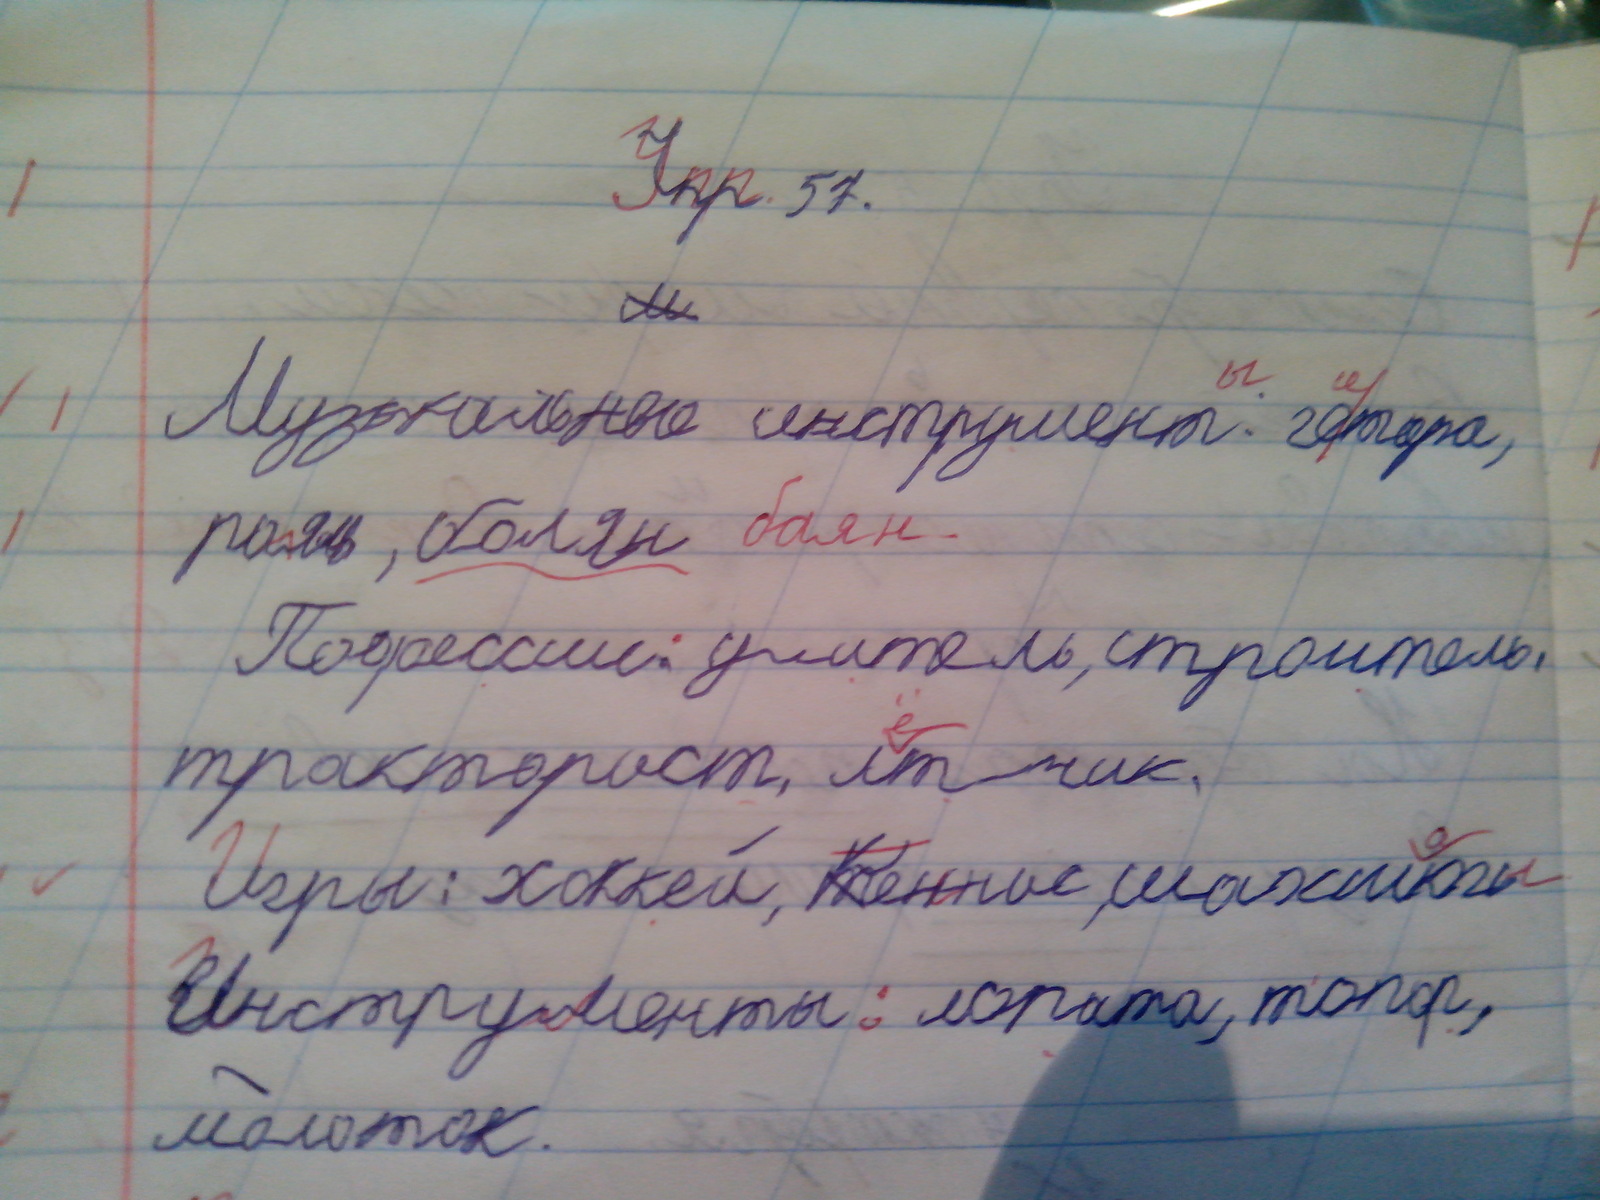 Упр. 57.
Музыкальные инструменты: гитара,
рояль,болян баян.
Пофессии: учитель, строитель,
тракторост, лётчик.
Игры: хоккей, теннис, шахматы
Инструменты: лопата, топор,
молоток.